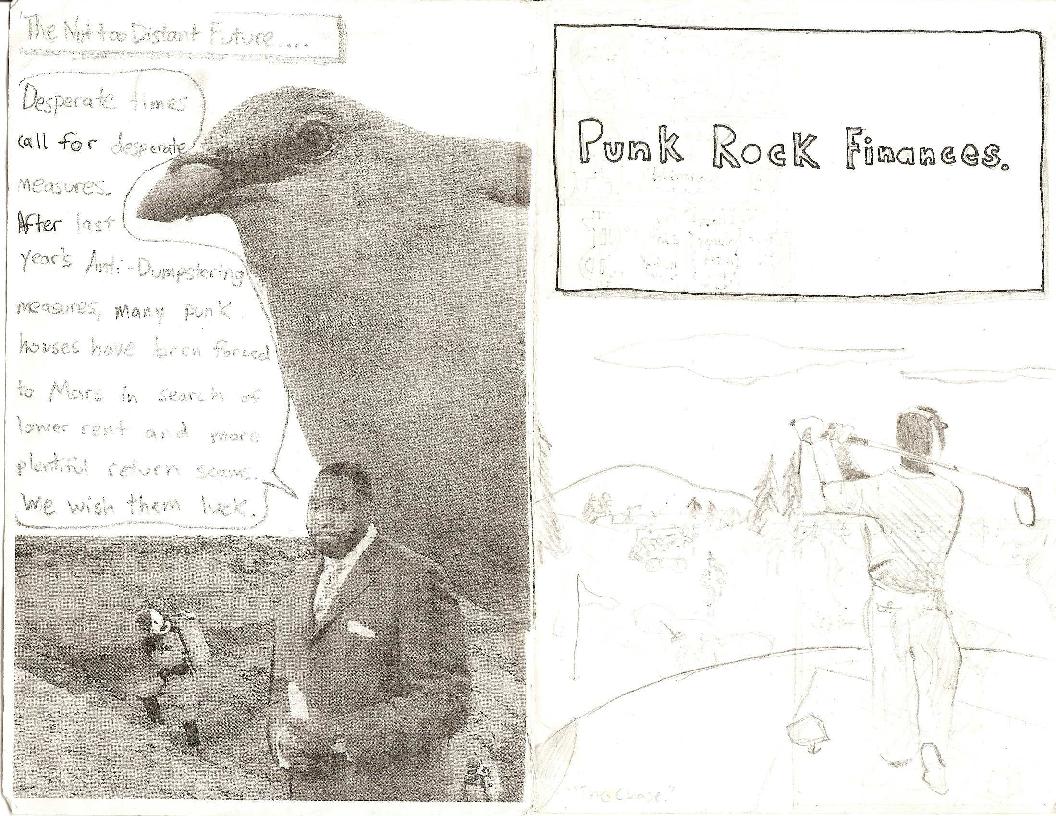 The Not too Distant Future....
Desperate times
call for desperate
measures.
After last
year's Anti-Dumpstering
measures, many punk
houses have been forced
to Mars in search of
lower rent and more
plentiful return scams.
We wish them luck.
Punk Rock Finances.